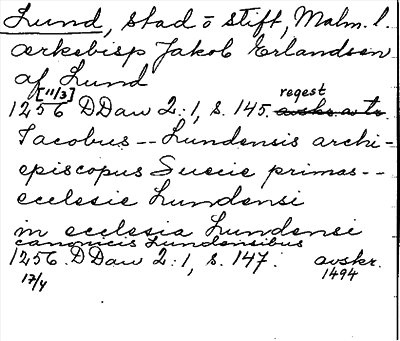 Lund, stad o stift, Malm. l.
ærkebisp Jakob Erlandsen
af Lund
[11/3] regest
1256 DDan 2:1, s. 145. avskr. a tr.
Iacobus -- Lundensis archi-
episcopus Suecie primas --
ecclesie Lundensi
in ecclesia Lundensi
canonicis Lundensibus
1256. DDan 2:1, s. 147. avskr.
17/4 1494